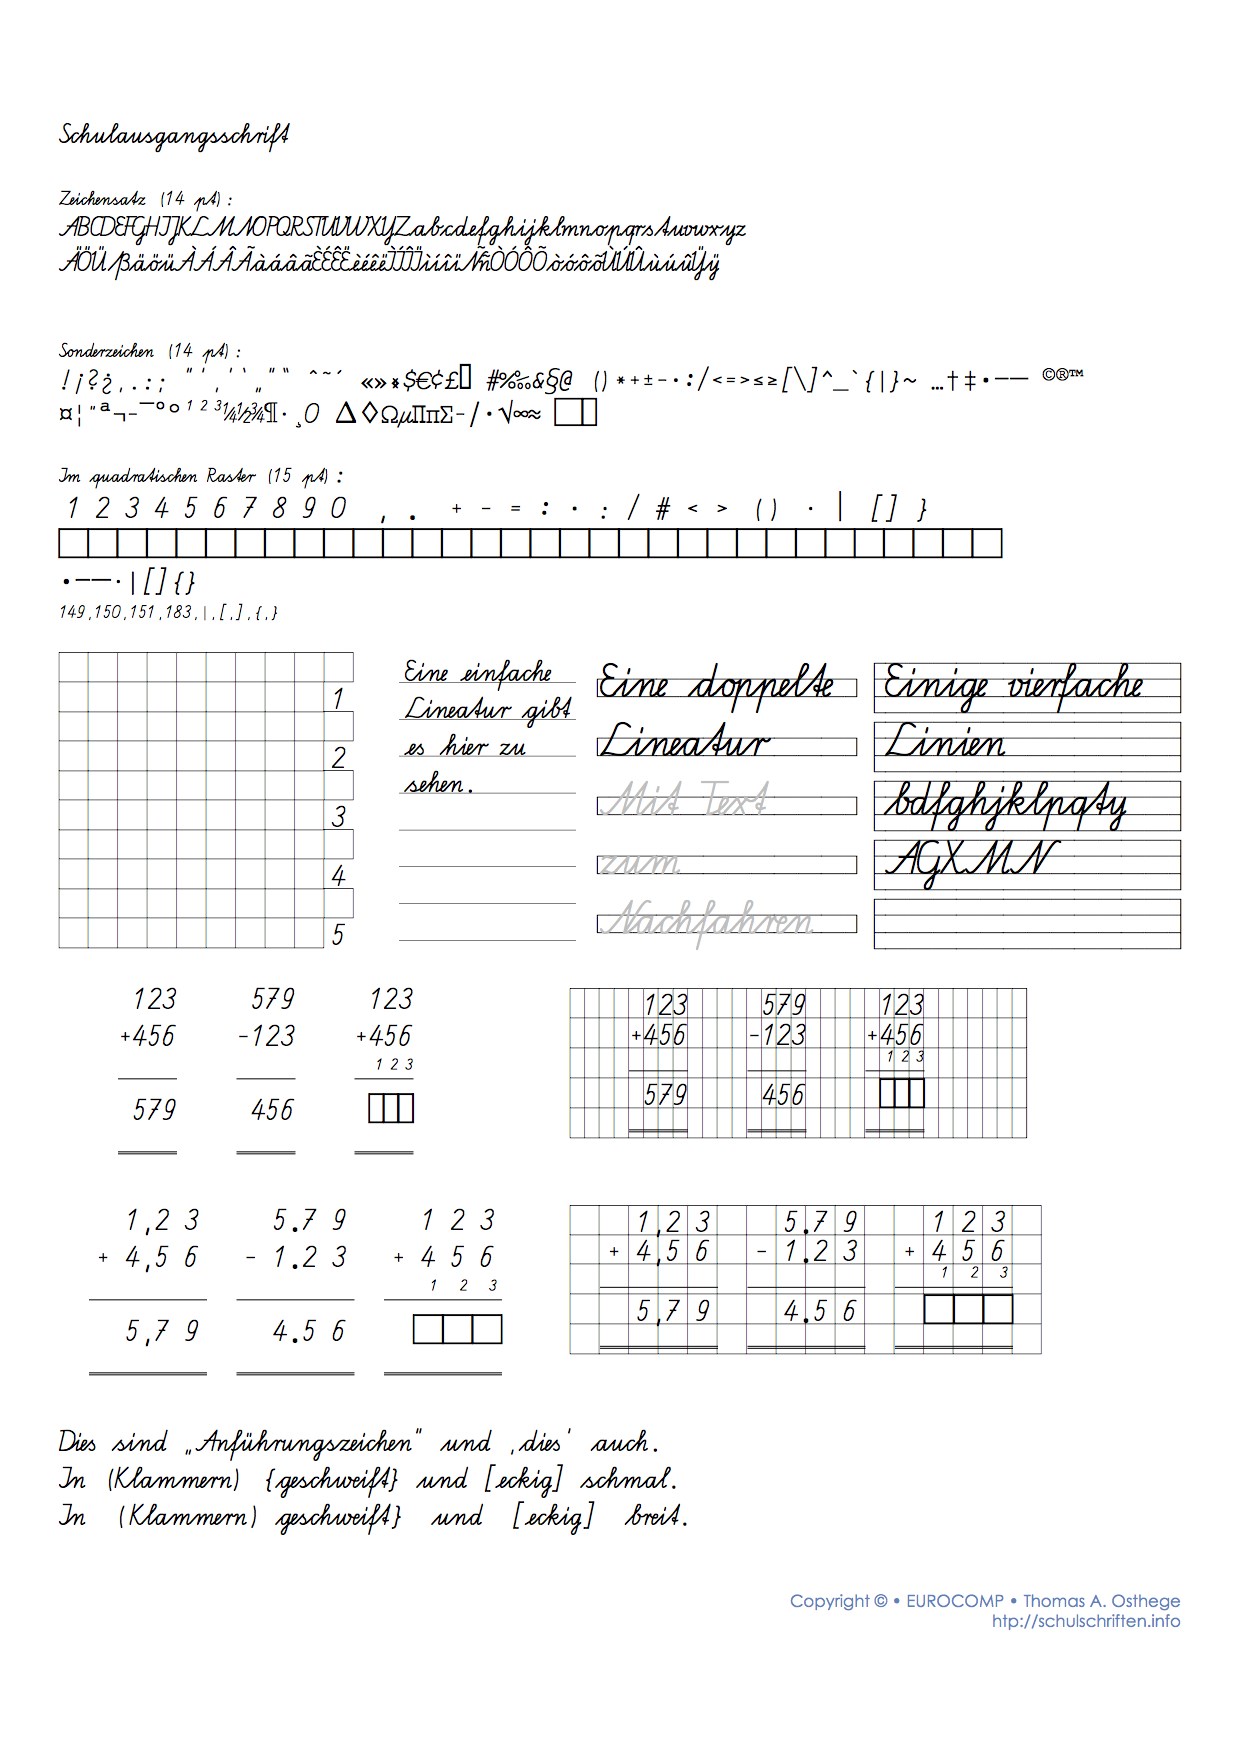 Schulausgangsschrift
Zeichensatz (14 pt) :
ABCDEFGHIJKLMNOPQRSTUVWXYZabcdefghijklmnopqrstuvwxyz
ÄÖÜßäöüÀÁÂÃàáâãÈÉÊËèéêëÌÍÎÏìíîïÑñÒÓÔÕòóôõÙÚÛùúûŸÿ
Sonderzeichen (14 pt) :
!¡?¿,.:; "','`„"“ ˆ˜´ «»*$€¢£□ #%‰&§@ ()*+±-·:/<=>≤≥[\]^_`{|}~ …†‡•–— ©®™
¤¦¨ª¬-¯°º¹²³¼½¾¶·¸0 ∆◊ΩµΠπΣ-/·√∞≈ □□
Im quadratischen Raster (15 pt) :
1 2 3 4 5 6 7 8 9 0 , . + - = : · : / # < > ( ) · | [ ] }
□□□□□□□□□□□□□□□□□□□□□□□□□□□□□□□□
•–—·|[]{}
149,150,151,183,|,[,],{,}
1
2
3
4
5
Eine einfache
Lineatur gibt
es hier zu
sehen.
Eine doppelte
Lineatur
Mit Text
zum
Nachfahren
Einige vierfache
Linien
bdfghjklpqty
AGXMN
123 579 123
+456 -123 +456
1 2 3
579 456 □□□
123 579 123
+456 -123 +456
1 2 3
579 456 □□□
1,2 3 5.7 9 1 2 3
+ 4,5 6 - 1.2 3 + 4 5 6
1 2 3
5,7 9 4.5 6 □□□
1,2 3 5.7 9 1 2 3
+ 4,5 6 - 1.2 3 + 4 5 6
1 2 3
5,7 9 4.5 6 □□□
Dies sind „Anführungszeichen" und ‚dies' auch.
In (Klammern) {geschweift} und [eckig] schmal.
In (Klammern) geschweift} und [eckig] breit.
Copyright © • EUROCOMP • Thomas A. Osthege
htp://schulschriften.info